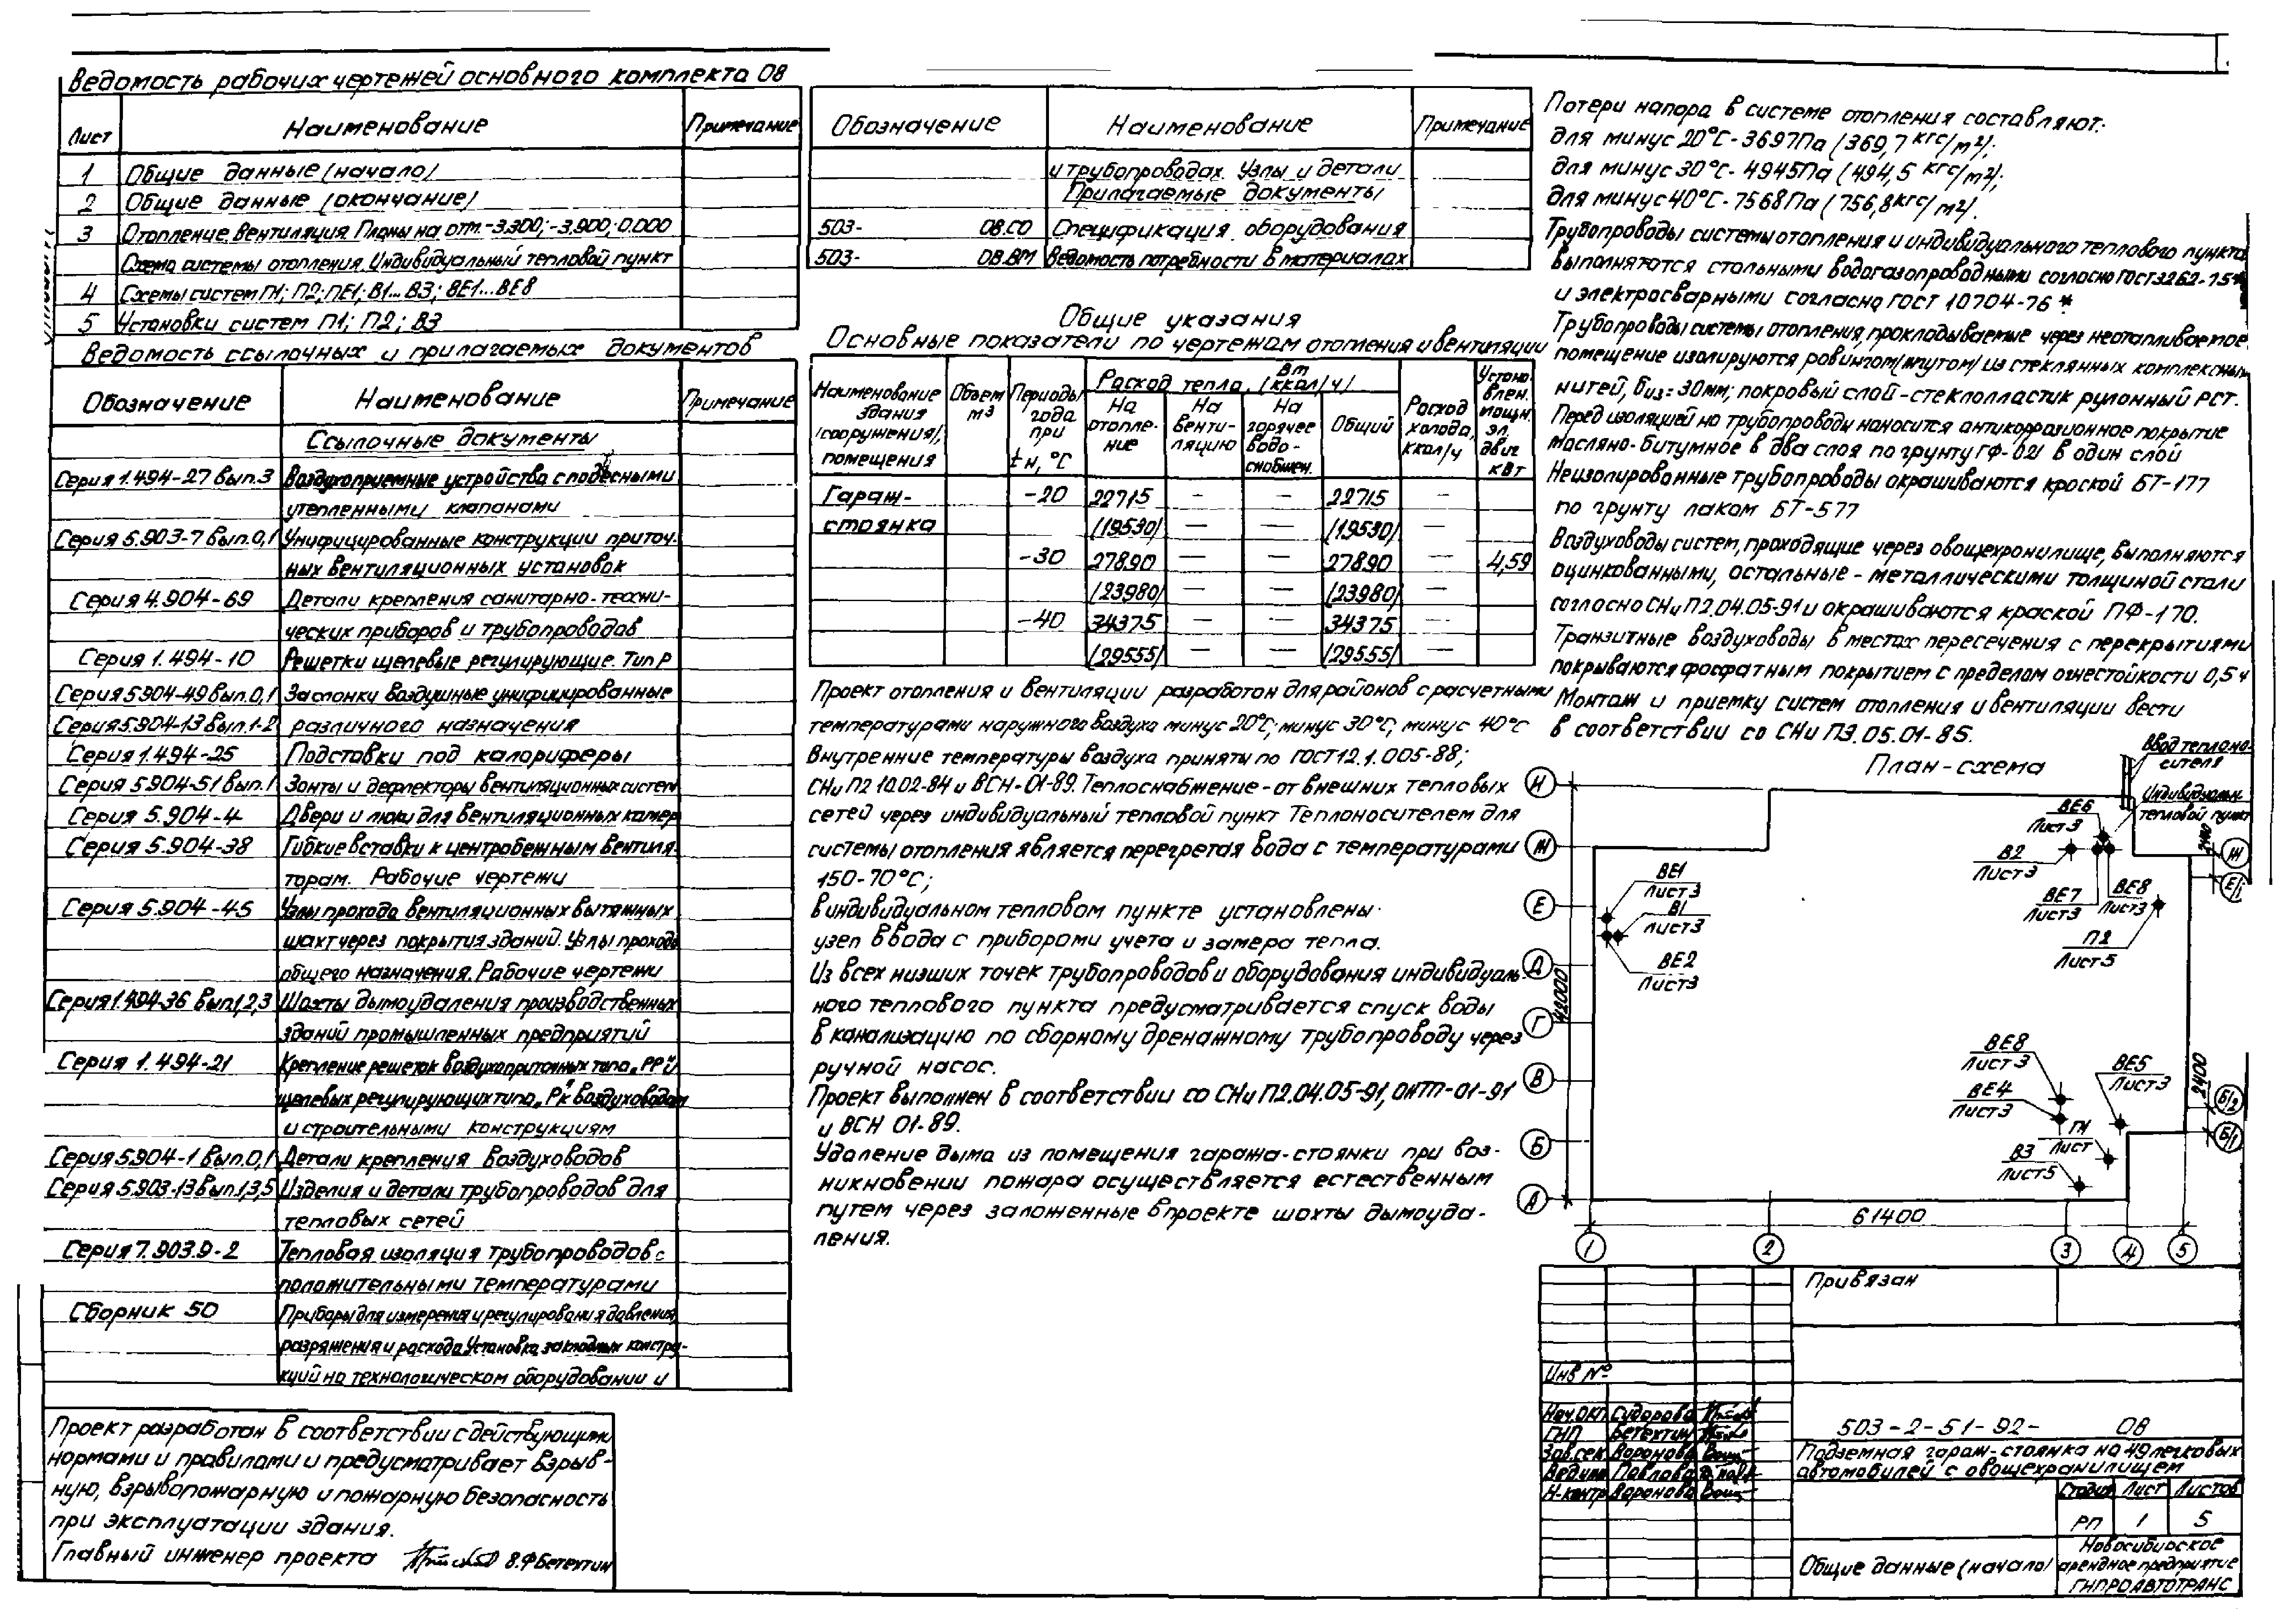 Ведомость рабочих чертежей основного комплекта ОВ
Лист Наименование Примечание
1 Общие данные (начало)
2 Общие данные (окончание)
3 Отопление, вентиляция. Планы на отм.-3.300; -3.900; 0.000
Схема системы отопления. Индивидуальный тепловой пункт
4 Схемы систем П1; П2; ПЕ1; В1...В3; ВЕ1...ВЕ8
5 Установки систем П1; П2; В3
Ведомость ссылочных и прилагаемых документов
Обозначение Наименование Примечание
Ссылочные документы
Серия 1.494-27 вып.3 Воздухоприемные устройства с подвесными
утепленными клапанами
Серия 5.903-7 вып.0,1 Унифицированные конструкции приточ-
ных вентиляционных установок
Серия 4.904-69 Детали крепления санитарно-техни-
ческих приборов и трубопроводов
Серия 1.494-10 Решетки щелевые регулирующие. Тип Р
Серия 5.904-49 вып.0,1 Заслонки воздушные унифицированные
Серия 5.904-13 вып.1-2 различного назначения
Серия 1.494-25 Подставки под калориферы
Серия 5.904-51 вып.1 Зонты и дефлекторы вентиляционных систем
Серия 5.904-4 Двери и люки для вентиляционных камер
Серия 5.904-38 Гибкие вставки к центробежным вентиля-
торам. Рабочие чертежи
Серия 5.904-45 Узлы прохода вентиляционных вытяжных
шахт через покрытия зданий. Узлы прохода
общего назначения. Рабочие чертежи
Серия 1.494-36 вып.1,2,3 Шахты дымоудаления производственных
зданий промышленных предприятий
Серия 1.494-21 Крепление решеток воздухоприточных типа „РР" и
щелевых регулирующих типа „Р" к воздуховодам
и строительными конструкциям
Серия 5.904-1 вып.0,1 Детали крепления воздуховодов
Серия 5.903-13 вып.1,3,5 Изделия и детали трубопроводов для
тепловых сетей
Серия 7.903.9-2 Тепловая изоляция трубопроводов с
положительными температурами
Сборник 50 Приборы для измерения и регулирования давления,
разряжения и расхода. Установка закладных констру-
кций на технологическом оборудовании и
Проект разработан в соответствии с действующими
нормами и правилами и предусматривает взрыв-
ную, взрывопожарную и пожарную безопасность
при эксплуатации здания.
Главный инженер проекта В.Ф Бетехтин
Обозначение Наименование Примечание
и трубопроводах. Узлы и детали
Прилагаемые документы
503- ОВ.СО Спецификация оборудования
503- ОВ.ВМ Ведомость потребности в материалах
Общие указания
Основные показатели по чертежам отопления и вентиляции
Наименование здания (сооружения), помещения
Объем м³
Периоды года при tн, °С
Расход тепла, Вт (ккал/ч)
На отопле-ние
На венти-ляцию
На горячее водо-снабжен.
Общий
Расход холода, ккал/ч
Устано-влен. мощн. эл. двиг. кВт
Гараж- -20 22715 — — 22715 —
стоянка (19530) — — (19530) —
-30 27890 — — 27890 — 4,59
(23980) — — (23980) —
-40 34375 — — 34375 —
(29555) — — (29555) —
Проект отопления и вентиляции разработан для районов с расчетными
температурами наружного воздуха минус 20°С; минус 30°С; минус 40°С
Внутренние температуры воздуха приняты по ГОСТ 12.1.005-88;
СНиП2 10.02-84 и ВСН-01-89. Теплоснабжение - от внешних тепловых
сетей через индивидуальный тепловой пункт Теплоносителем для
системы отопления является перегретая вода с температурами
150-70°С;
В индивидуальном тепловом пункте установлены:
узел ввода с приборами учета и замера тепла.
Из всех низших точек трубопроводов и оборудования индивидуаль-
ного теплового пункта предусматривается спуск воды
в канализацию по сборному дренажному трубопроводу через
ручной насос.
Проект выполнен в соответствии со СНиП2.04.05-91, ОНТП-01-91
и ВСН 01-89.
Удаление дыма из помещения гаража-стоянки при воз-
никновении пожара осуществляется естественным
путем через заложенные в проекте шахты дымоуда-
ления.
Потери напора в системе отопления составляют:
для минус 20°С - 3697Па (369,7 кгс/м²);
для минус 30°С - 4945Па (494,5 кгс/м²);
для минус 40°С - 7568Па (756,8 кгс/м²).
Трубопроводы системы отопления и индивидуального теплового пункта
выполняются стальными водогазопроводными согласно ГОСТ 3262-75*
и электросварными согласно ГОСТ 10704-76*
Трубопроводы системы отопления, прокладываемые через неотапливаемое
помещение изолируются ровингом (жгутом) из стеклянных комплексных
нитей, биз=30мм; покровый слой-стеклопластик рулонный РСТ.
Перед изоляцией на трубопроводы наносится антикоррозионное покрытие
масляно-битумное в два слоя по грунту ГФ-021 в один слой
Неизолированные трубопроводы окрашиваются краской БТ-177
по грунту лаком БТ-577
Воздуховоды систем, проходящие через овощехранилище, выполняются
оцинкованными, остальные - металлическими толщиной стали
согласно СНиП2.04.05-91 и окрашиваются краской ПФ-170.
Транзитные воздуховоды в местах пересечения с перекрытиями
покрываются фосфатным покрытием с пределом огнестойкости 0,5ч
Монтаж и приемку систем отопления и вентиляции вести
в соответствии со СНиП3.05.01-85.
План-схема
Ввод теплоно-
сителя
Индивидуальн.
тепловой пункт
И
Ж
Е
Д
Г
В
Б
А
42000
ВЕ1
Лист 3
В1
Лист 3
ВЕ2
Лист 3
ВЕ6
Лист 3
В2
Лист 3
ВЕ7
Лист 3
ВЕ8
Лист 3
П2
Лист 5
Ж
Е/1
2400
ВЕ8
Лист 3
ВЕ4
Лист 3
ВЕ5
Лист 3
П1
Лист
В3
Лист 5
2400
Б/2
Б/1
61400
1 2 3 4 5
Привязан
Инв №
Нач.ОКП Судорова
ГИП Бетехтин
Зав.сек Воронова
Вед.инж Павлова
Н-контр Воронова
503-2-51-92- ОВ
Подземная гараж-стоянка на 49 легковых
автомобилей с овощехранилищем
Стадия Лист Листов
РП 1 5
Общие данные (начало)
Новосибирское
арендное предприятие
ГИПРОАВТОТРАНС